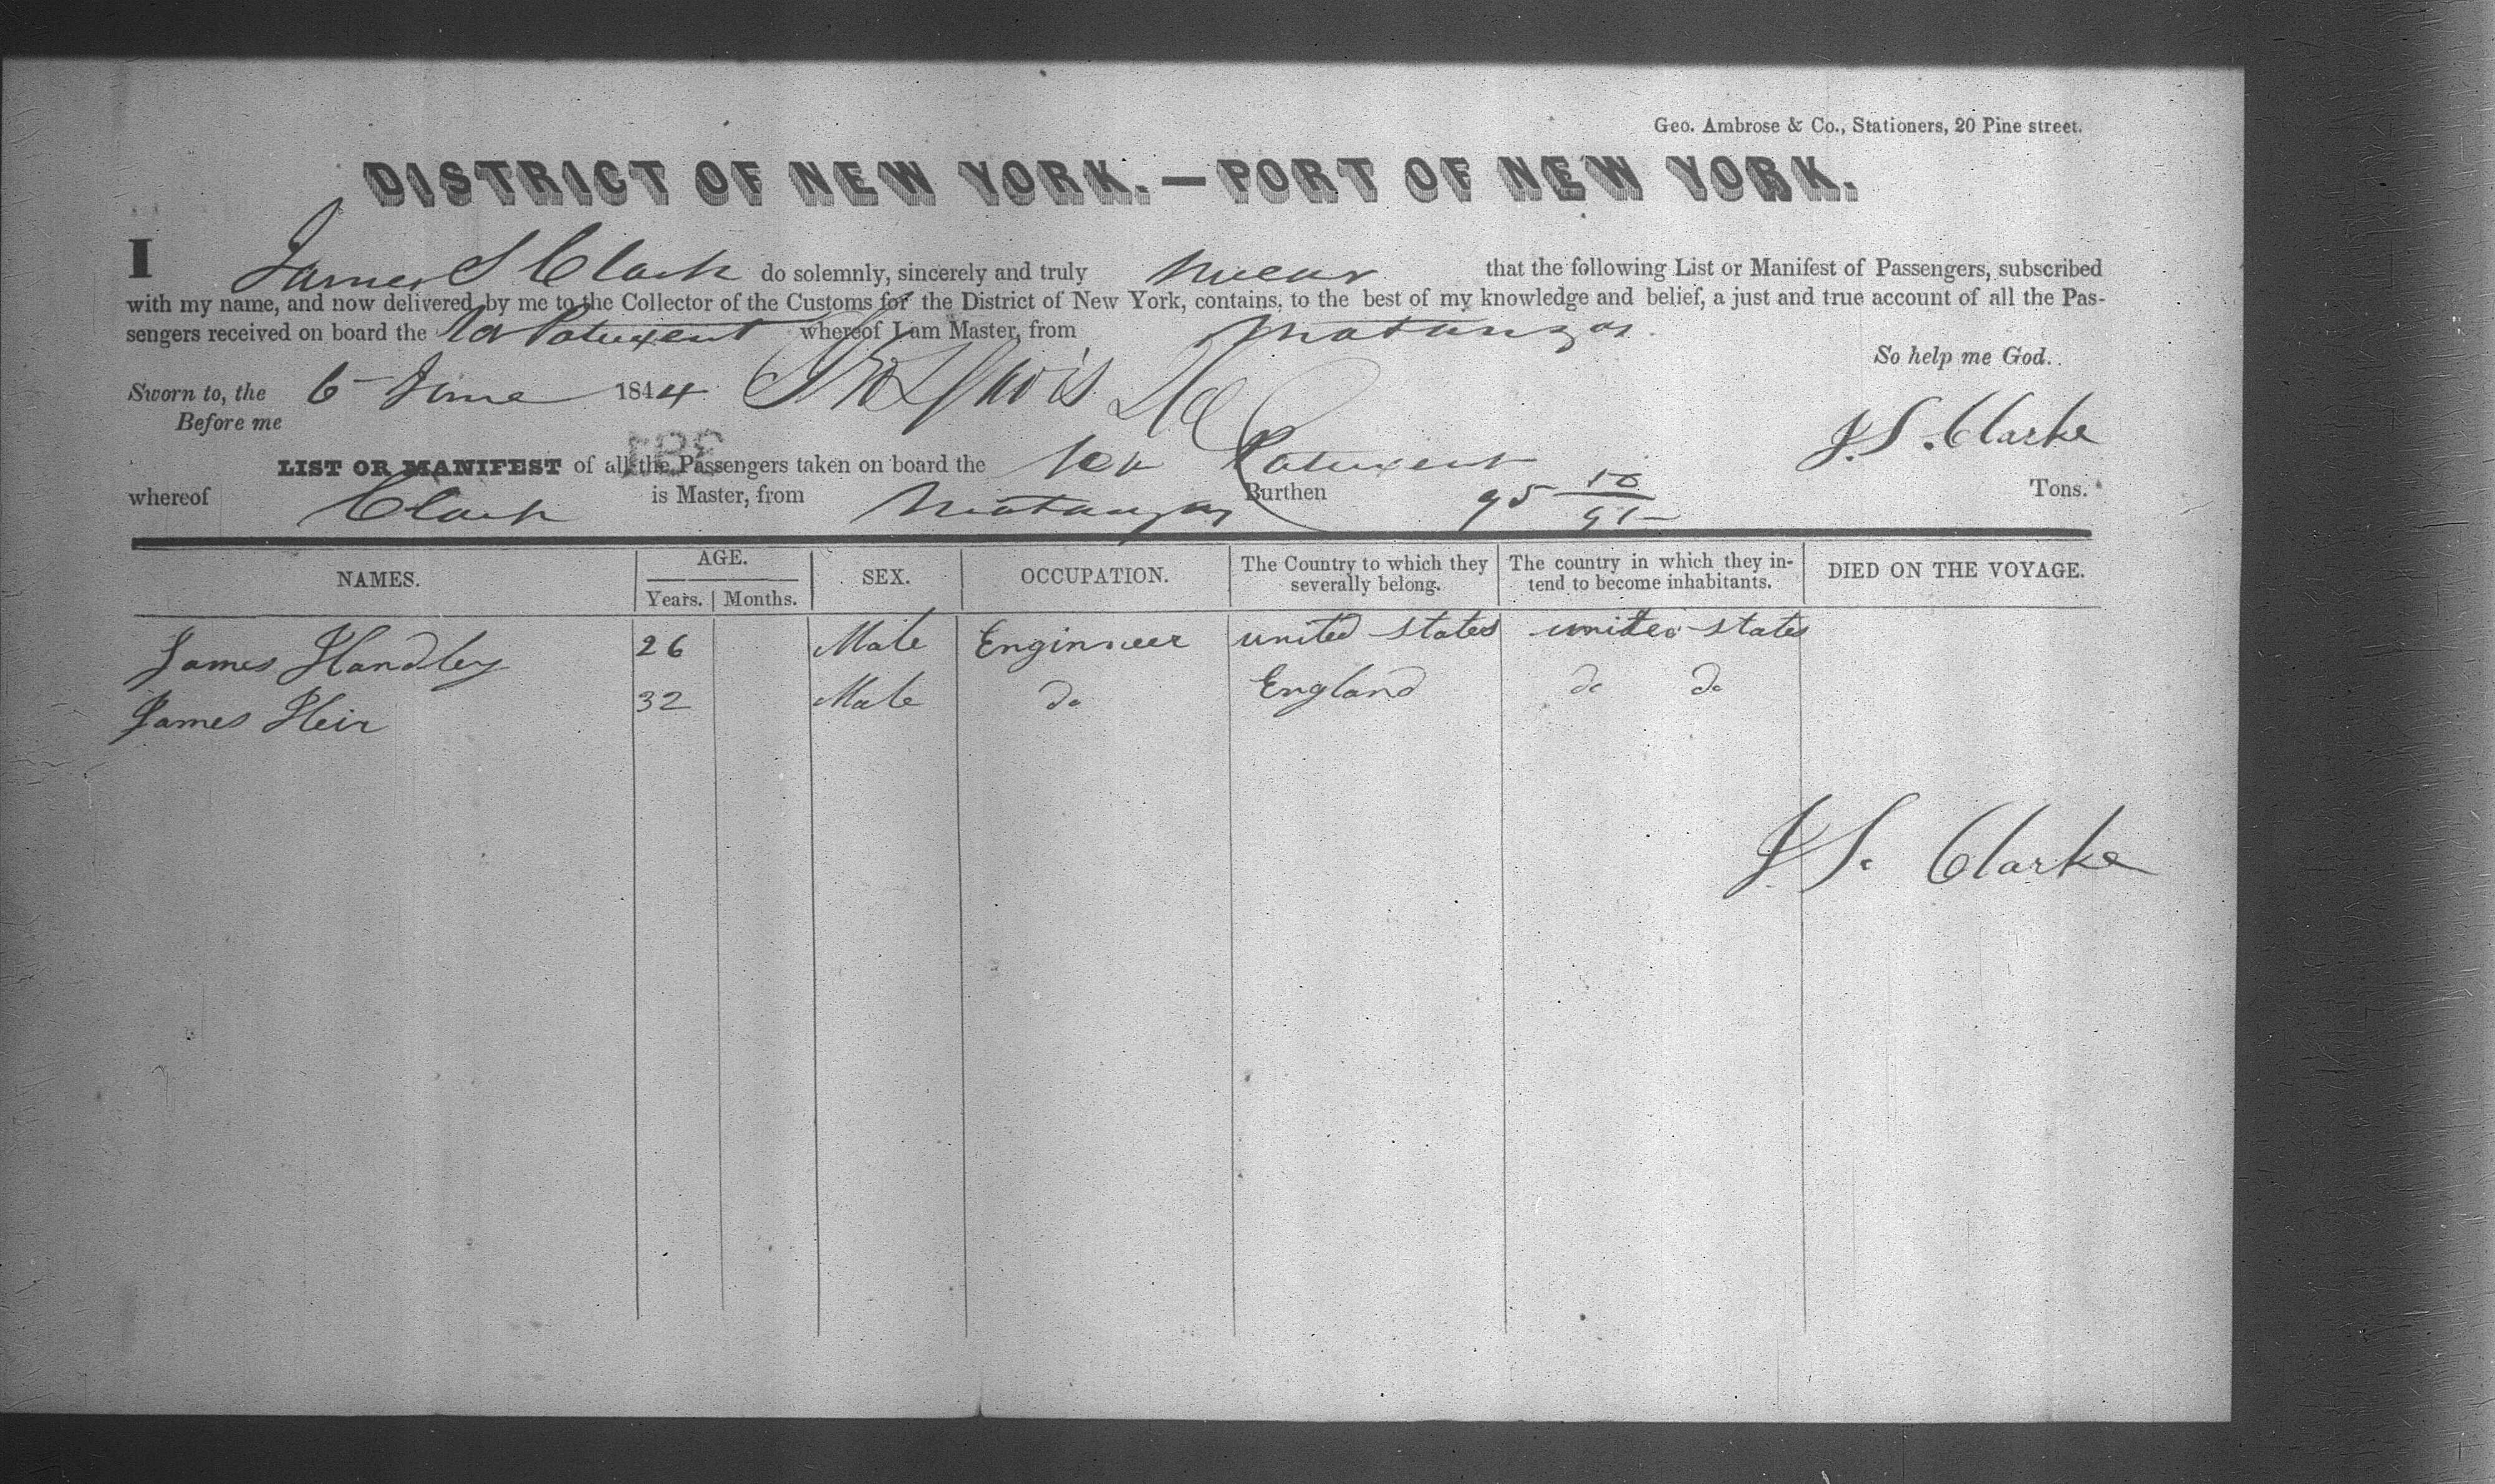 Geo. Ambrose & Co., Stationers, 20 Pine street.
DISTRICT OF NEW YORK.—PORT OF NEW YORK.
I James S Clark do solemnly, sincerely and truly swear that the following List or Manifest of Passengers, subscribed
with my name, and now delivered by me to the Collector of the Customs for the District of New York, contains, to the best of my knowledge and belief, a just and true account of all the Pas-
sengers received on board the Patuxent whereof I am Master, from Matanzas
So help me God.
Sworn to, the 6 June 1844
Before me
J.S. Clarke
LIST OR MANIFEST of all the Passengers taken on board the Sch Patuxent
whereof Clark is Master, from Matanzas Burthen 95 Tons.
NAMES. AGE. SEX. OCCUPATION. The Country to which they severally belong. The country in which they in-tend to become inhabitants. DIED ON THE VOYAGE.
Years. Months.
James Handley 26 Male Enginneer united states united states
James Heir 32 Male do England do do
J S. Clarke